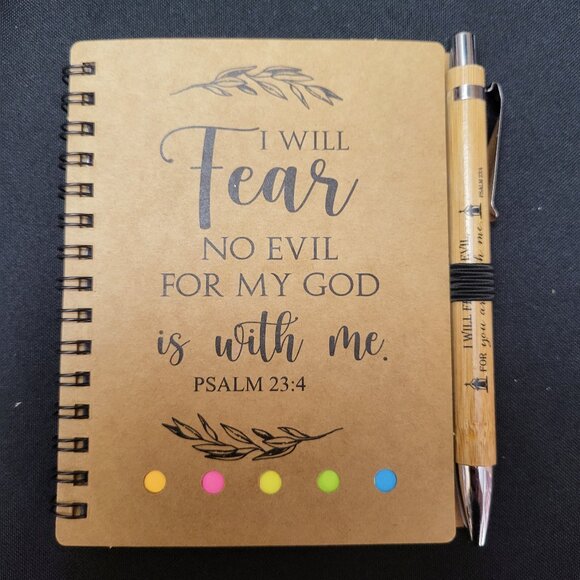 I WILL
Fear
NO EVIL
FOR MY GOD
is with me.
PSALM 23:4
I WILL
EVIL,
FOR you
me.
PSALM 23:4